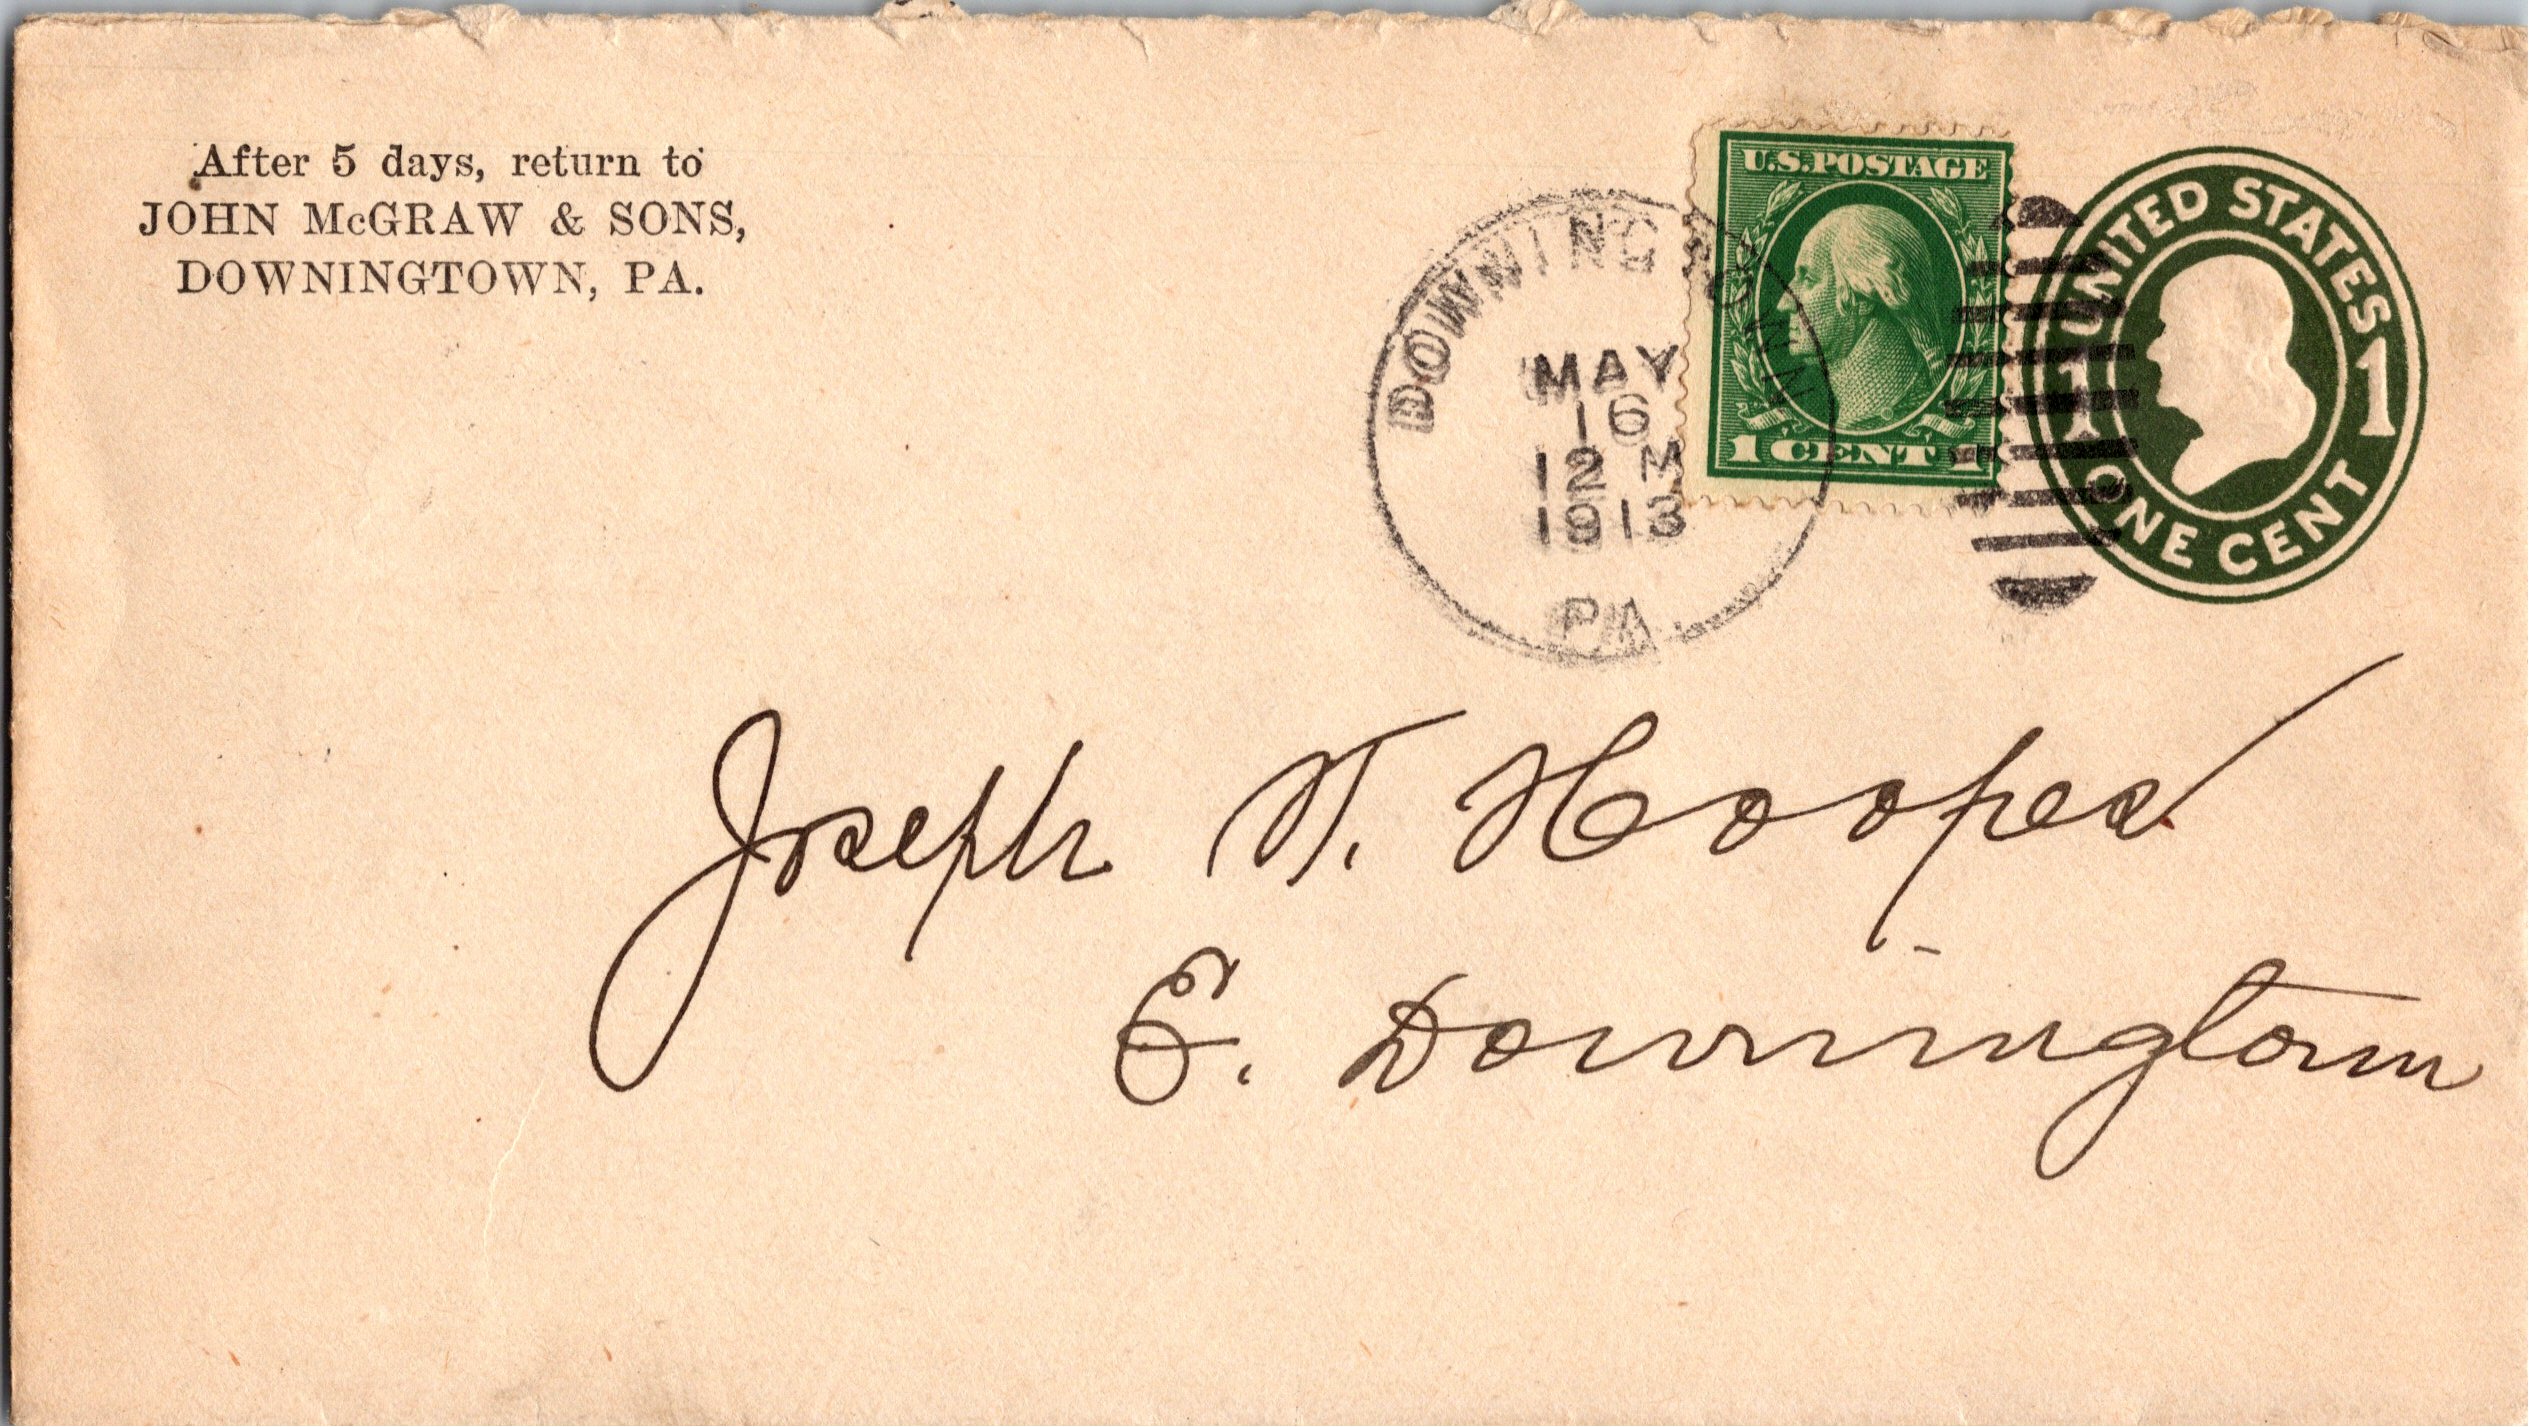 After 5 days, return to
JOHN McGRAW & SONS,
DOWNINGTOWN, PA.
DOWNINGTOWN
MAY
16
12 M
1913
PA.
U.S. POSTAGE
1 CENT 1
UNITED STATES
1 1
ONE CENT
Joseph T. Hoopes
E. Downingtown